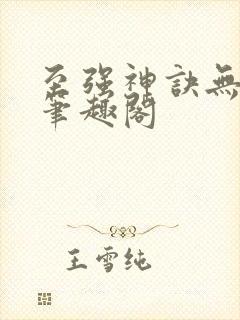 至强神诀無
筆趣閣
王雪纯